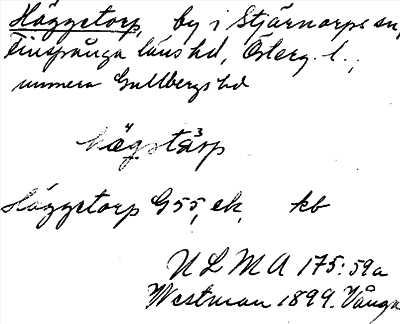 Häggetorp, by i Stjärnorps sn,
Finspånga läns hd, Österg. l.,
numera Gullbergs hd
hägstårp
Häggetorp G 55, ek, kb
ULMA 175:59a
Westman 1899. Vånga